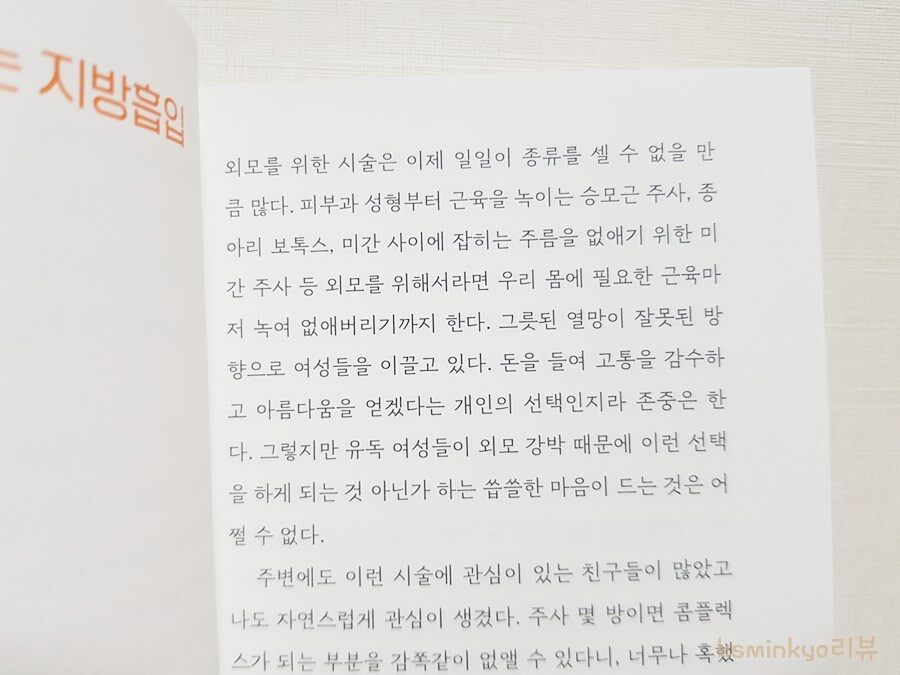 는 지방흡입
외모를 위한 시술은 이제 일일이 종류를 셀 수 없을 만
큼 많다. 피부과 성형부터 근육을 녹이는 승모근 주사, 종
아리 보톡스, 미간 사이에 잡히는 주름을 없애기 위한 미
간 주사 등 외모를 위해서라면 우리 몸에 필요한 근육마
저 녹여 없애버리기까지 한다. 그릇된 열망이 잘못된 방
향으로 여성들을 이끌고 있다. 돈을 들여 고통을 감수하
고 아름다움을 얻겠다는 개인의 선택인지라 존중은 한
다. 그렇지만 유독 여성들이 외모 강박 때문에 이런 선택
을 하게 되는 것 아닌가 하는 씁쓸한 마음이 드는 것은 어
쩔 수 없다.
주변에도 이런 시술에 관심이 있는 친구들이 많았고
나도 자연스럽게 관심이 생겼다. 주사 몇 방이면 콤플렉
스가 되는 부분을 감쪽같이 없앨 수 있다니, 너무나 혹했
ksminkyo리뷰